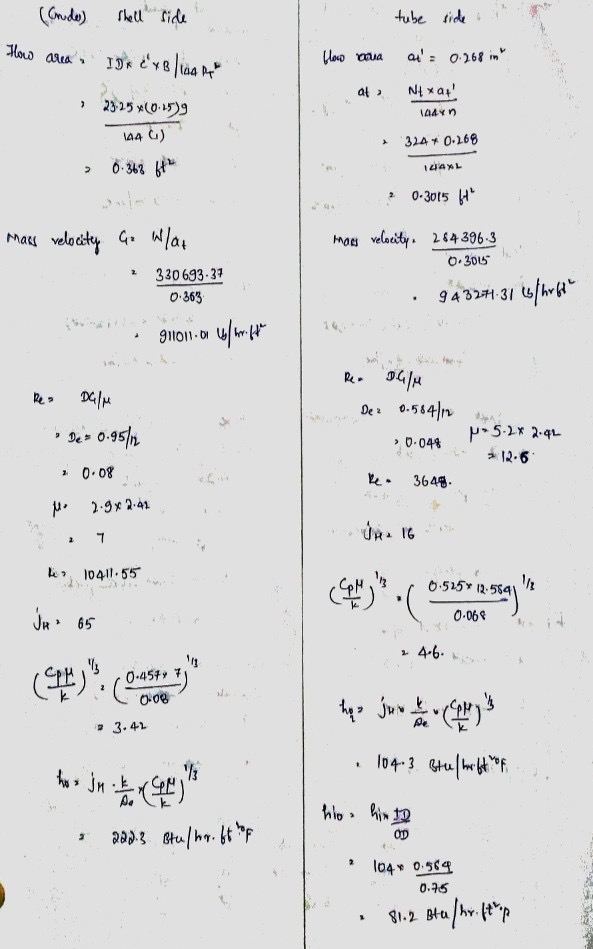 (Crude) shell side
Flow area = ID × C' × B / 144 PT
= 23.25 × (0.25) 9
144 (1)
= 0.363 ft²
Mass velocity G = W/at
= 330693.37
0.363
= 911011.01 lb/hr.ft²
Re = DG/μ
= De = 0.95/12
= 0.08
μ = 2.9 × 2.42
= 7
Re = 10411.55
jH = 65
(Cpμ/k)^1/3 = (0.457 × 7 / 0.08)^1/3
= 3.42
ho = jH · k/De × (Cpμ/k)^1/3
= 222.3 Btu/hr.ft² °F
tube side
flow area at' = 0.268 in²
at = Nt × at'
144 × n
= 324 × 0.268
144 × 2
= 0.3015 ft²
Mass velocity = 284396.3
0.3015
= 943271.31 lb/hr ft²
Re = DG/μ
De = 0.584/12
= 0.048
μ = 5.2 × 2.42
= 12.6
Re = 3648.
jH = 16
(Cpμ/k)^1/3 = (0.525 × 12.584 / 0.068)^1/3
= 4.6.
hi = jH × k/De × (Cpμ/k)^1/3
= 104.3 Btu/hr ft² °F
hio = hi × ID
OD
= 104 × 0.584
0.75
= 81.2 Btu/hr.ft².F